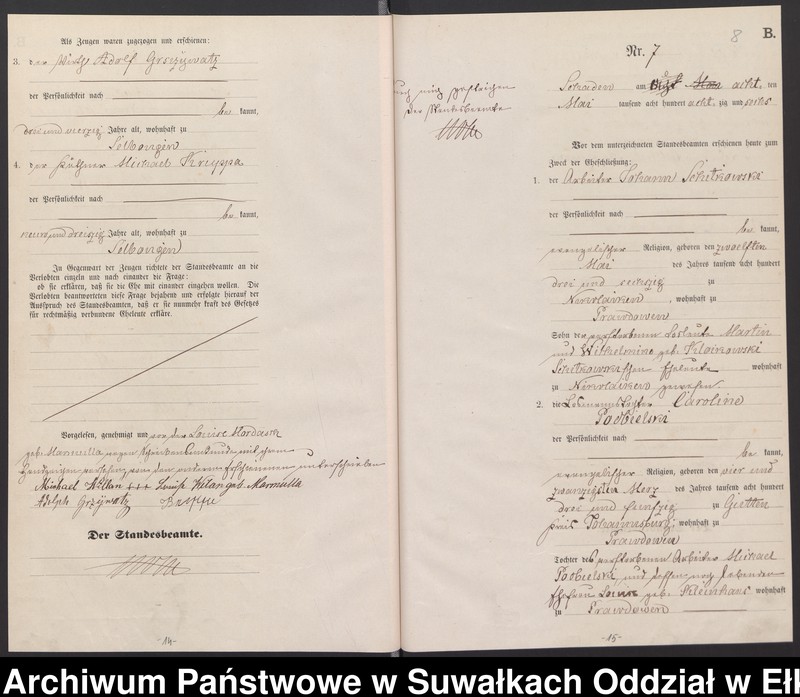 Als Zeugen waren zugezogen und erschienen:
3. der Wirth Adolf Grzizwatz
der Persönlichkeit nach
be kannt,
drei und vierzig Jahre alt, wohnhaft zu
Selbongen
4. der Käthner Michael Kruppa
der Persönlichkeit nach
be kannt,
neun und dreizig Jahre alt, wohnhaft zu
Selbongen
In Gegenwart der Zeugen richtete der Standesbeamte an die
Verlobten einzeln und nach einander die Frage:
ob sie erklären, daß sie die Ehe mit einander eingehen wollen. Die
Verlobten beantworteten diese Frage bejahend und erfolgte hierauf der
Ausspruch des Standesbeamten, daß er sie nunmehr kraft des Gesetzes
für rechtmäßig verbundene Eheleute erkläre.
Vorgelesen, genehmigt und von der Louise
geb. Marmulla wegen mit ihrem
Handzeichen versehen, von den unterschrieben
Michael Kilan +++ Louise Kilan geb. Marmulla
Adolph Grzywatz
Der Standesbeamte.
-14-
auch mich
Der Standesbeamte
8
B.
Nr. 7
Schaden am acht, ten
Mai tausend acht hundert acht, zig und sechs
Vor dem unterzeichneten Standesbeamten erschienen heute zum
Zweck der Eheschließung:
1. der Arbeiter Johann Schitkowski
der Persönlichkeit nach
be kannt,
evangelischer Religion, geboren den zwoelften
Mai des Jahres tausend acht hundert
drei und zu
Nikolaiken, wohnhaft zu
Prawdowen
Sohn der verstorbenen Losleute Martin
und Wilhelmine geb.
Schitkowskischen Eheleute wohnhaft
zu Nikolaiken gewesen.
2. die Caroline
Podbielski
der Persönlichkeit nach
be kannt,
evangelischer Religion, geboren den vier und
zwanzigsten Merz des Jahres tausend acht hundert
drei und fuenfzig zu Gietten
Kreis Johannesburg, wohnhaft zu
Prawdowen
Tochter des verstorbenen Arbeiter Michael
Podbielski, und dessen noch lebenden
Ehefrau Louise geb. Kleinhans wohnhaft
zu Prawdowen
-15-
Archiwum Państwowe w Suwałkach Oddział w Eł